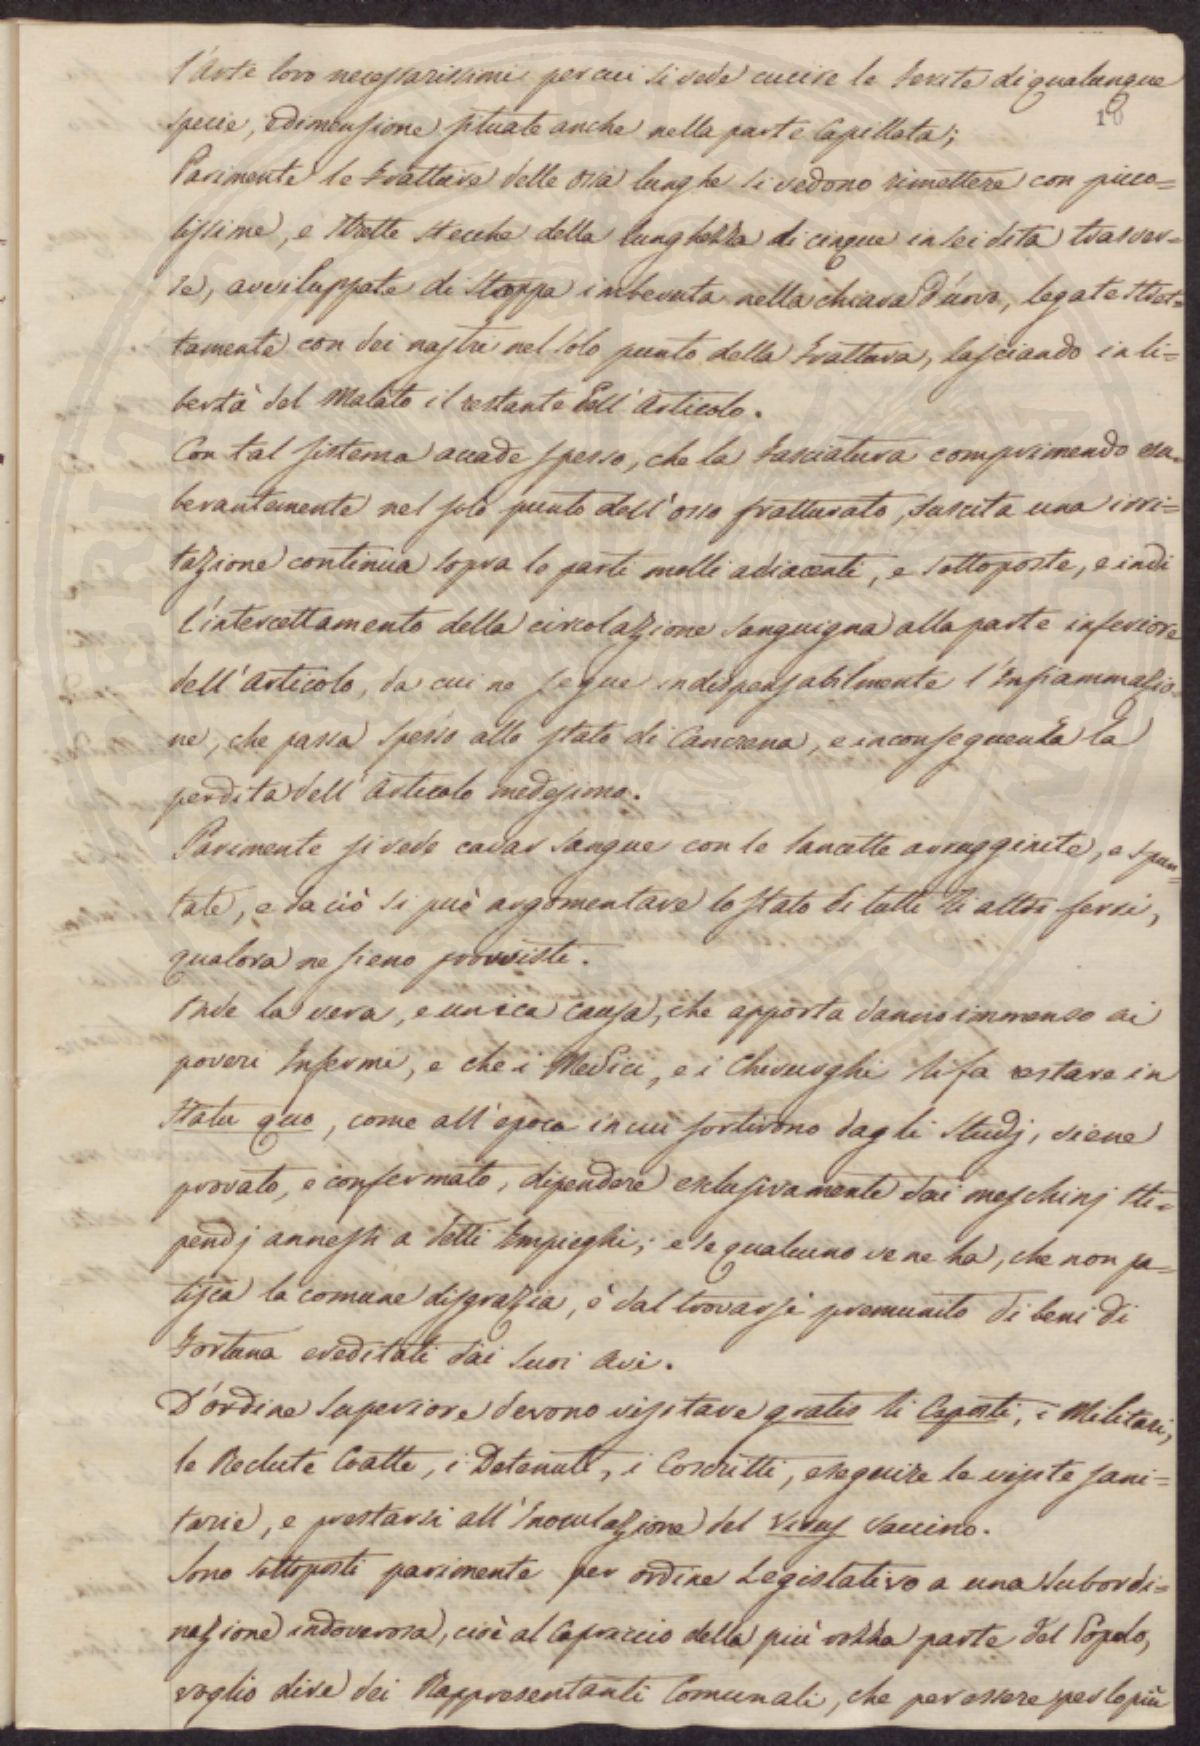 l'Arte loro necessarissimi, per cui si vede cucire le ferite di qualunque
18
specie, e dimensione situate anche nella parte Capillata;
Parimente le Fratture delle ossa lunghe si vedono rimettere con picco=
lissime, e strette stecche della lunghezza di cinque in sei dita trasver=
se, avviluppate di stoppa imbevuta nella chiara d'uovo, legate stret=
tamente con dei nastri nel solo punto della Frattura, lasciando in li=
bertà del Malato il restante dell'Articolo.
Con tal sistema accade spesso, che la Fasciatura comprimendo esu=
berantemente nel solo punto dell'osso fratturato, suscita una irri=
tazione continua sopra le parti molli adiacenti, e sottoposte, e indi
l'intercettamento della circolazione sanguigna alla parte inferiore
dell'Articolo, da cui ne segue indispensabilmente l'Infiammazio=
ne, che passa spesso allo stato di Cancrena, e in conseguenza la
perdita dell'Articolo medesimo.
Parimente si vede cavar sangue con le lancette arrugginite, e spun=
tate, e da ciò si può argomentare lo stato di tutti li altri ferri,
qualora ne sieno provviste.
Onde la vera, e unica causa, che apporta danno immenso ai
poveri Infermi, e che i Medici, e i Chirurghi li fa restare in
statu quo, come all'epoca in cui sortirono dagli Studj, viene
provato, e confermato, dipendere esclusivamente dai meschinj sti=
pendj annessi a detti Impieghi; e se qualcuno ve ne ha, che non pa=
tisca la comune disgrazia, è dal trovarsi premunito di beni di
Fortuna ereditati dai suoi Avi.
D'ordine Superiore devono visitare gratis li Esposti, i Militari,
le Reclute Coatte, i Detenuti, i Coscritti, eseguire le visite sani=
tarie, e prestarsi all'Inoculazione del Virus vaccino.
Sono sottoposti parimente per ordine Legislativo a una subordi=
nazione indoverosa, cioè al Capriccio della più rozza parte del Popolo,
voglio dire dei Rappresentanti Comunali, che per essere per lo più